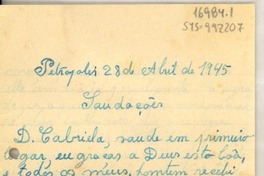 16984.1
SYS-992207
Petropolis 28 de Abril de 1945
Saudações
D. Gabriela, saude em primeiro
lugar, eu graças a Deus estou boa,
e todos os meus, hontem recebi